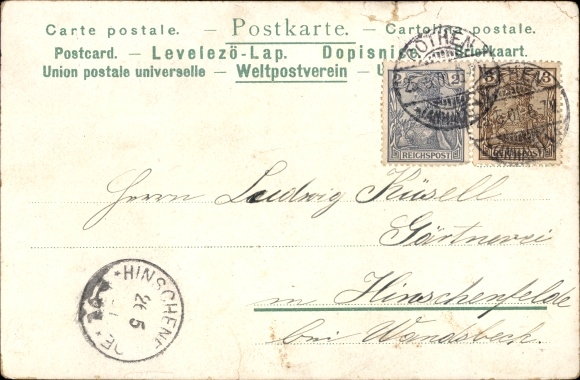 Carte postale. — Postkarte. — Cartolina postale.
Postcard. — Levelező-Lap. Dopisnice. Briefkaart.
Union postale universelle — Weltpostverein — U
2 2
REICHSPOST
3 3
CÖTHEN
(ANHALT)
Herrn Ludwig Küsell
Gärtnerei
in Hinschenfelde
bei Wandsbeck.
HINSCHENF
DE
26 5